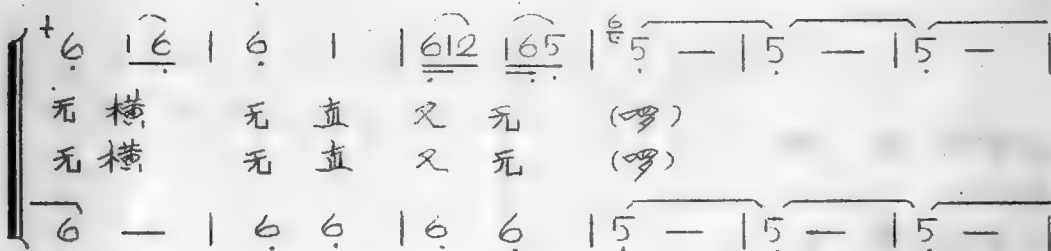 +6̣ 1 6̣ | 6̣ 1 | 6̣12 16̣5̣ | 6̣ 5̣ — | 5̣ — | 5̣ — |
无 横 无 直 又 无 (啰)
无 横 无 直 又 无 (啰)
6̣ — | 6̣ 6̣ | 6̣ 6̣ | 5̣ — | 5̣ — | 5̣ — |